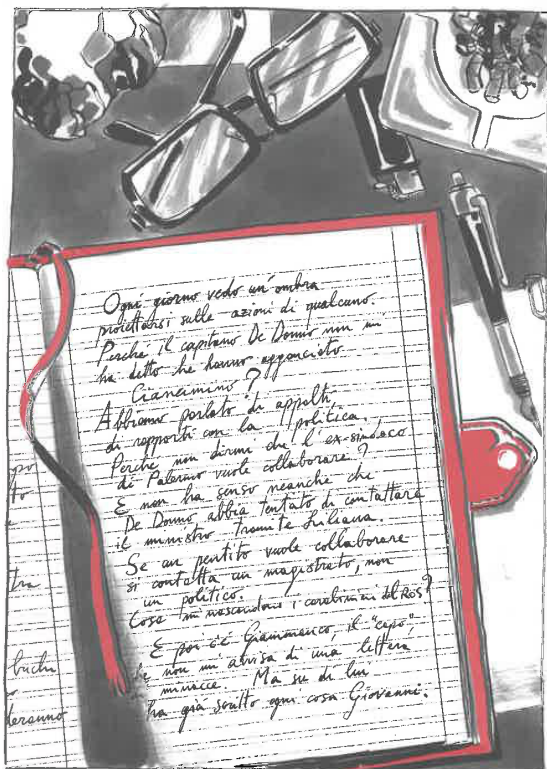 po
to
e
tra
buchi
o
deranno
Ogni giorno vedo un'ombra
proiettarsi sulle azioni di qualcuno.
Perché il capitano De Donno non mi
ha detto che hanno agganciato
Ciancimino?
Abbiamo parlato di appalti,
di rapporti con la politica.
Perché non dirmi che l'ex-sindaco
di Palermo vuole collaborare?
E non ha senso neanche che
De Donno abbia tentato di contattare
il ministro tramite Liliana.
Se un pentito vuole collaborare
si contatta un magistrato, non
un politico.
Cosa mi nascondono i carabinieri del ROS?
E poi c'è Giammanco, il "capo"
che non mi avvisa di una lettera
minacce. Ma su di lui
ha già scritto ogni cosa Giovanni.